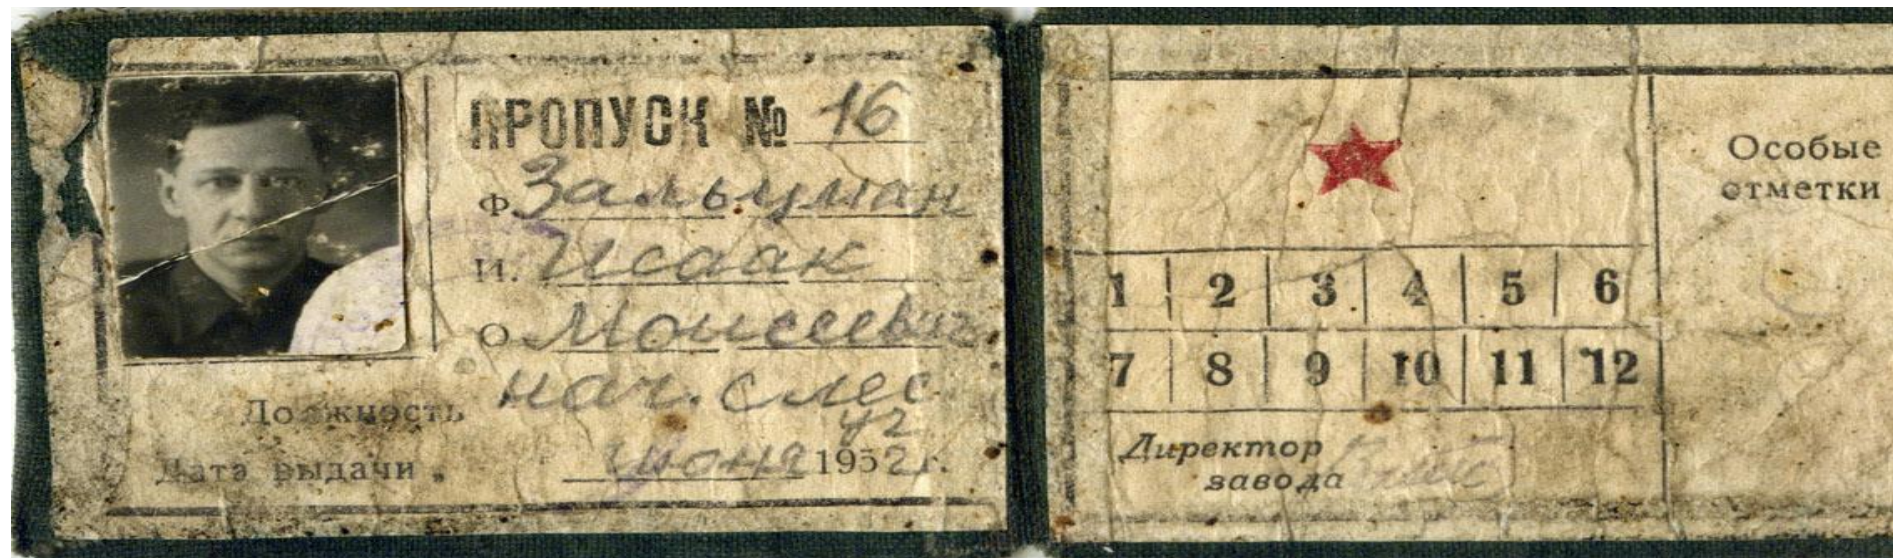 ПРОПУСК № 16
Ф. Зальцман
И. Исаак
О. Моисеевич
Должность нач. слес.
уч.
Дата выдачи „ июня 1952 г.
1 2 3 4 5 6
7 8 9 10 11 12
Директор
завода
Особые
отметки